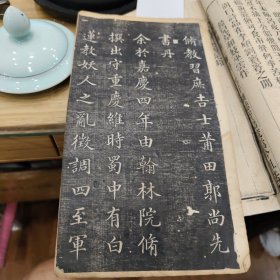 脩教習庶吉士莆田郭尚先
書丹
余於嘉慶四年由翰林院脩
撰出守重慶維時蜀中有白
蓮教妖人之亂徵調四至軍